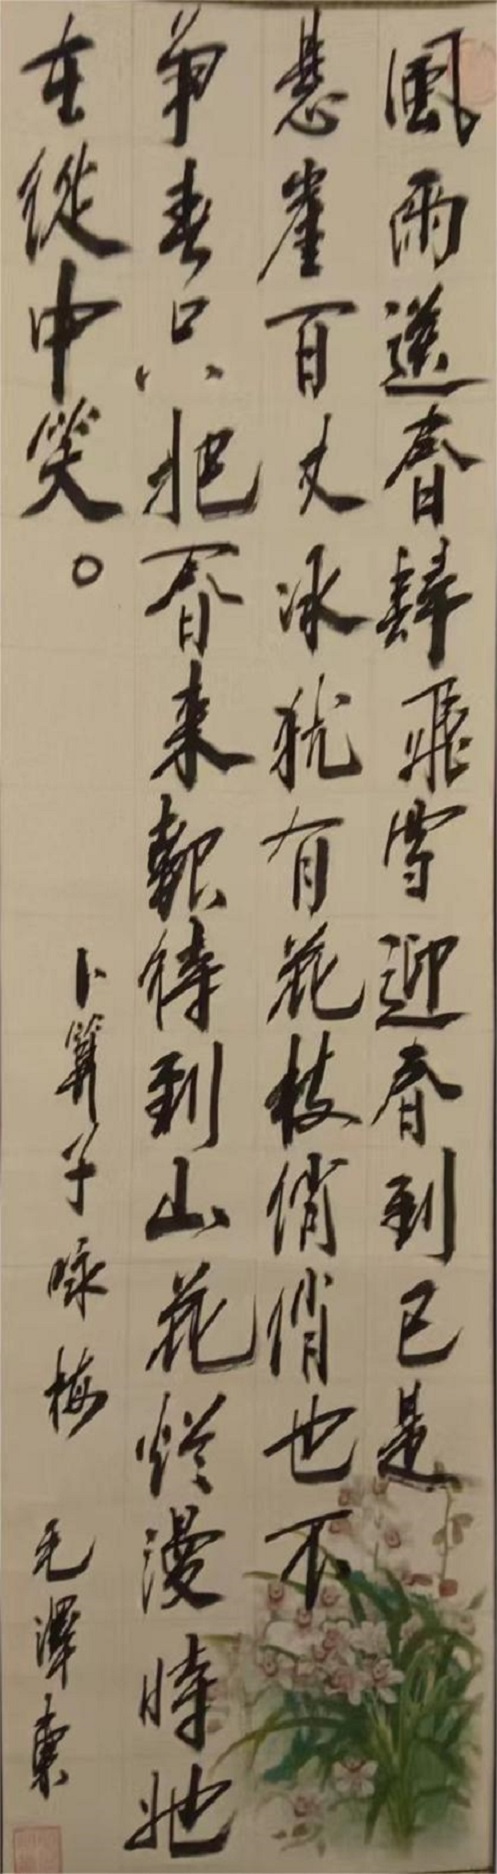 風雨送春歸飛雪迎春到已是
悬崖百丈冰犹有花枝俏俏也不
争春只把春来報待到山花烂漫時她
在從中笑。
卜算子咏梅 毛澤東